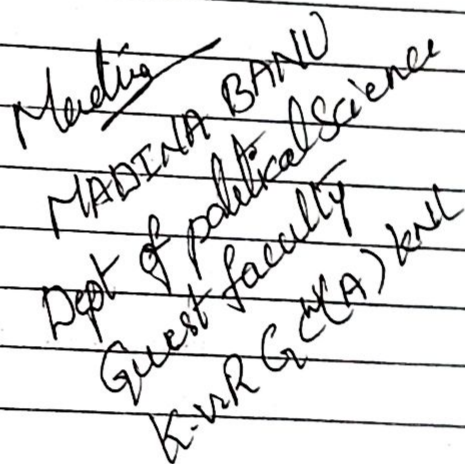 Madina
MADINA BANU
Dept of political Science
Guest faculty
K.V.R GCW(A) KNL